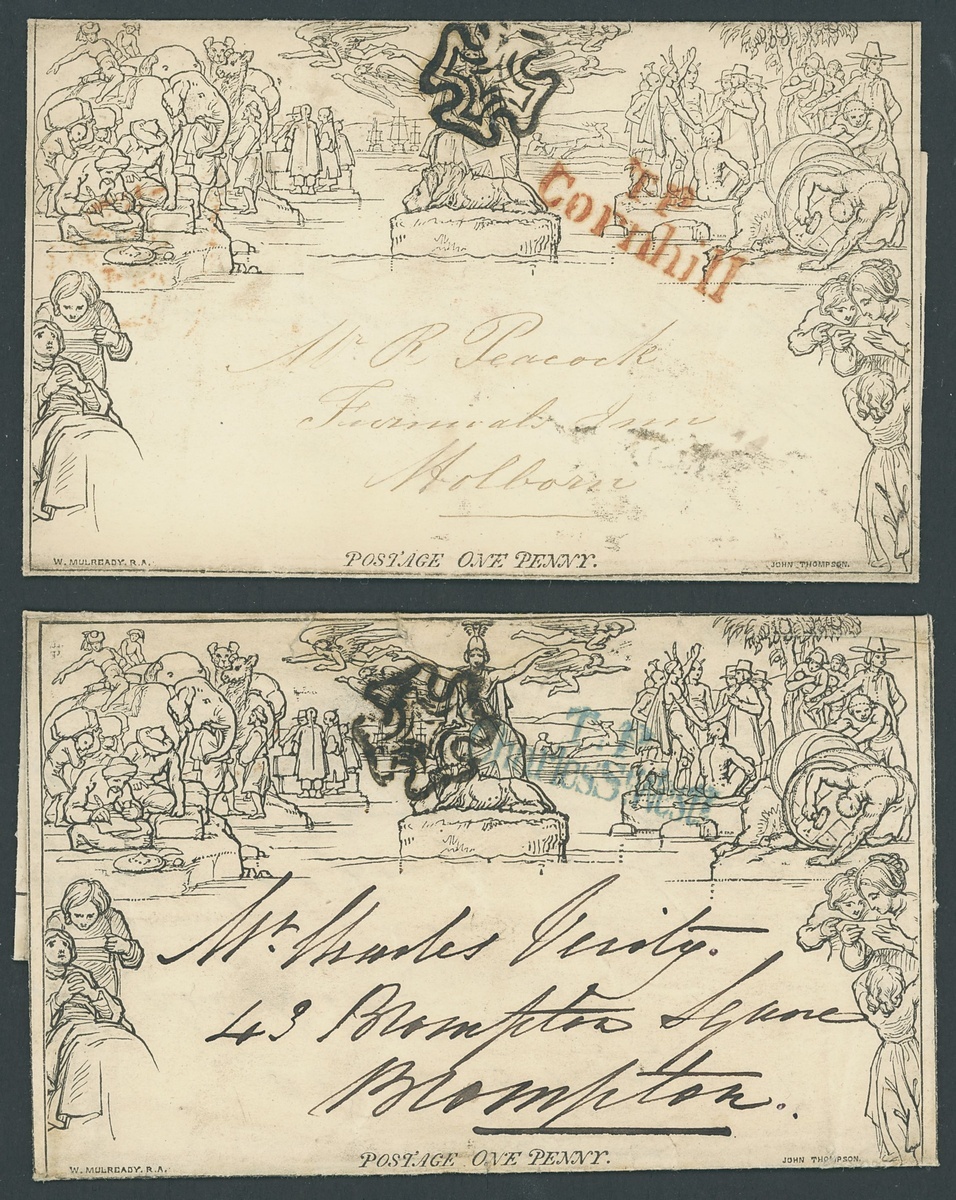 T P
Cornhill
Mr R Peacock
Furnivals Inn
Holborn
W. MULREADY, R.A.
POSTAGE ONE PENNY.
JOHN THOMPSON.
T. P.
Mr Charles Verity.
43 Brompton Square
Brompton.
W. MULREADY, R.A.
POSTAGE ONE PENNY.
JOHN THOMPSON.